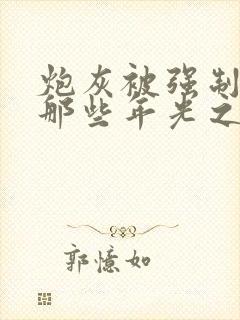 炮灰被强制
那些年光之
郭憶如